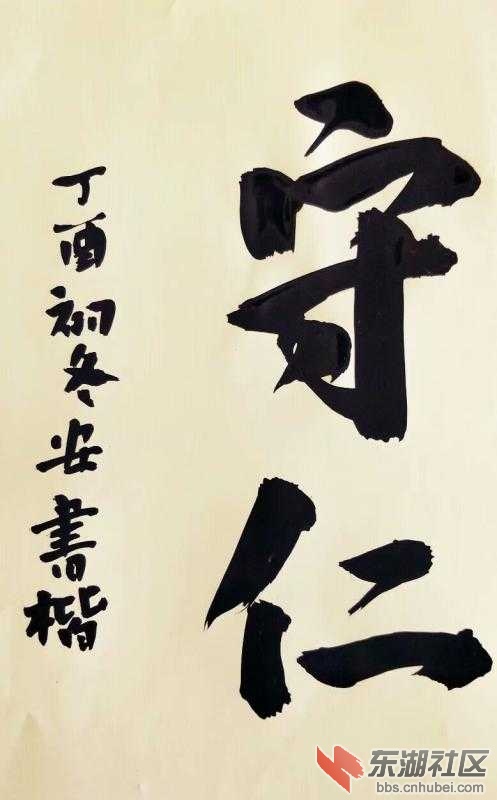 守仁
丁酉初冬安书楷
东湖社区
bbs.cnhubei.com